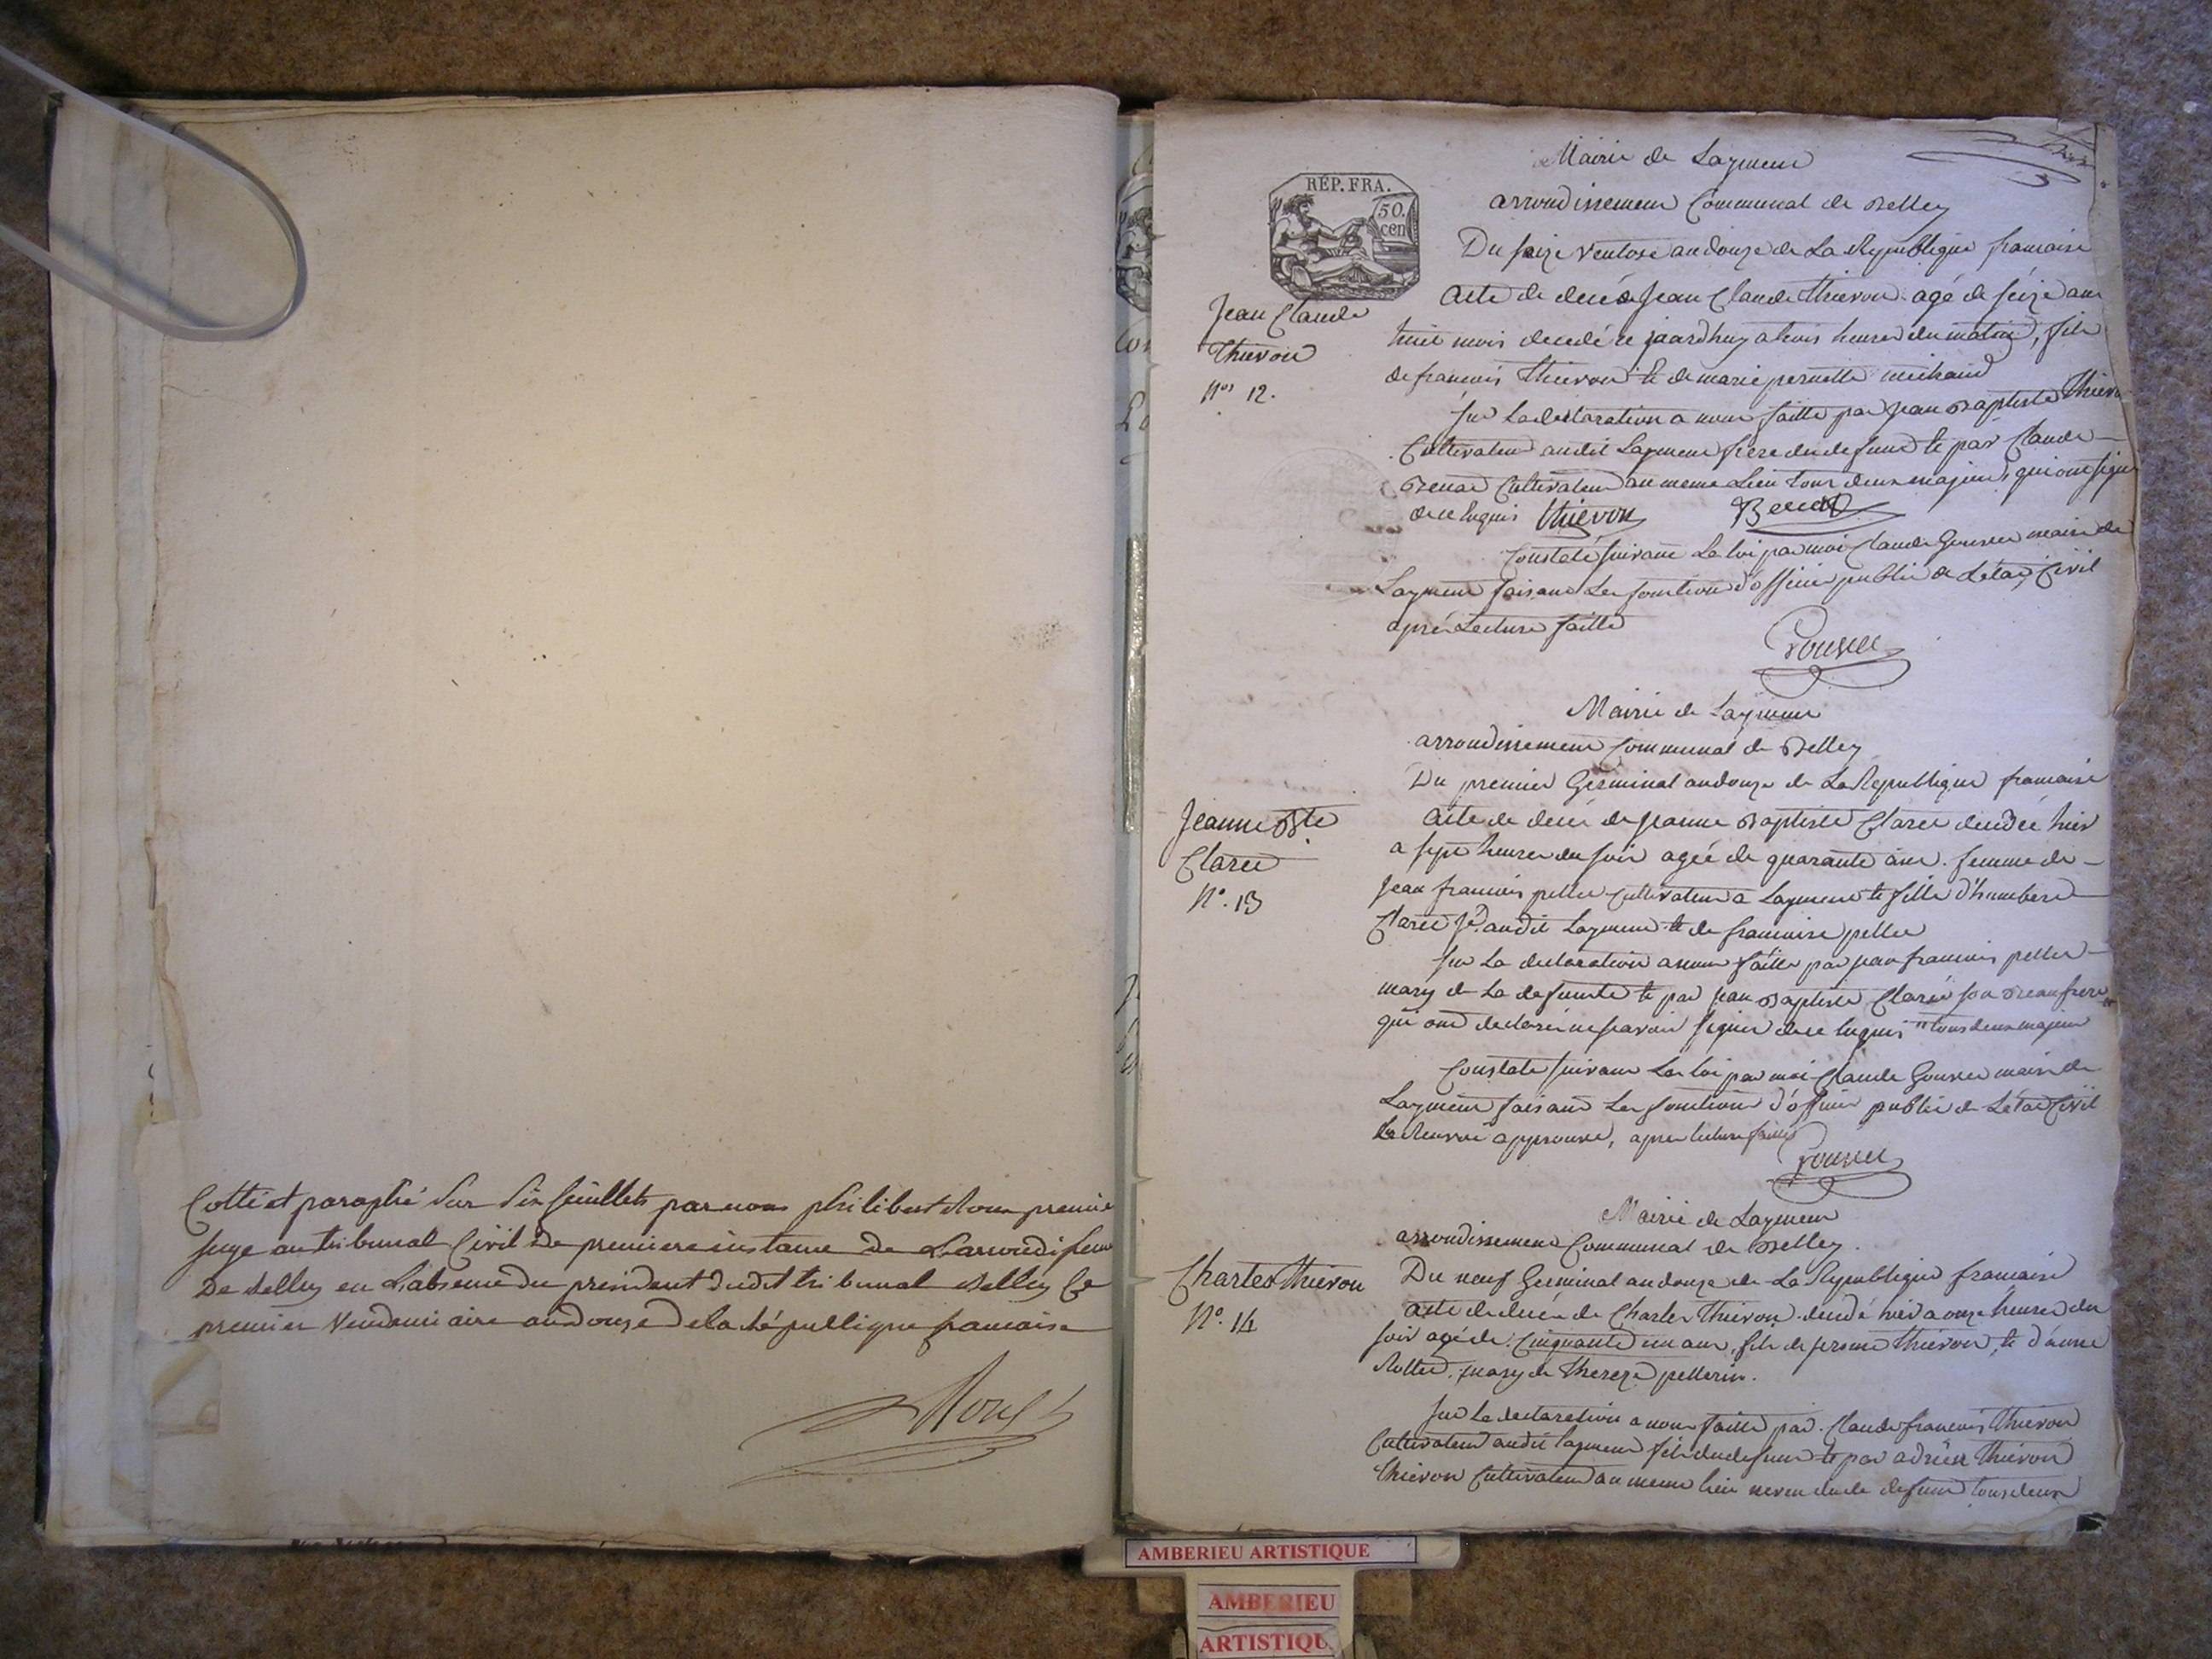 Cotté et paraphé sur six feuillets par nous philibert Roux premier
juge au tribunal Civil de premiere instance de Larrondissem
De Belley en L'absence du president dudit tribunal Belley Ce
premier Vendemiaire an douze de la République francaise
Roux
Mairie de Laymeur
REP. FRA.
50.
cen
arrondissement Communal de Belley
Du seize ventose an douze de La Republique francaise
Jean Claude
Thievon
Nos 12.
Acte de decé de Jean Claude Thievon agé de seize ans
huit mois decedé ce jaurdhuy a trois heures du matin, fils
de francois Thievon te de marie pernette michaud
sur La declaration a nous faitte par Jean Baptiste Thievon
Cultivateur audit Laymeur frere du defunt te par Claude
Benod Cultivateur au meme Lieu tous deux majeurs, qui ont signé
de ce enquis Thievon Benod
Constaté suivant La loi par moi Claude maire de
Laymeur faisant Les fonctions d'officier public de L'état Civil
aprés Lecture faitte
Mairie de Laymeur
arrondissement Communal de Belley
Du premier Germinal an douze de La Republique francaise
Jeanne Bte
Claree
No. 13
Acte de decés de Jeanne Baptiste Claree decedée hier
a sept heures du soir agée de quarante ans. femme de
Jean francois pellet Cultivateur a Laymeur te fille d'humbert
Claree audit Laymeur te de francoise pellet
sur La declaration a nous faitte par Jean francois pellet
mary de La defunte te par Jean Baptiste Claree son Beaufrere
qui ont declaré ne savoir signer de ce enquis " tous deux majeur
Constaté suivant La loi par moi Claude maire de
Laymeur faisant Les fonctions d'officier public de L'état Civil
Le Renvoi approuvé, apres lecture faitte
Mairie de Laymeur
arrondissement Communal de Belley.
Charles Thievon
No. 14
Du neuf Germinal an douze de La Republique francaise
acte de decés de Charles Thievon decedé hier a onze heures du
soir agé de Cinquante un ans, fils de jerome Thievon, te d'anne
Rottet. mary de Thereze pellerin.
sur La declaration a nous faitte par Claude francois Thievon
Cultivateur audit Laymeur fils du defunt te par adrien Thievon
Thievon Cultivateur au meme lieu neveu du de defunt tous deux
AMBERIEU ARTISTIQUE
AMBERIEU
ARTISTIQU